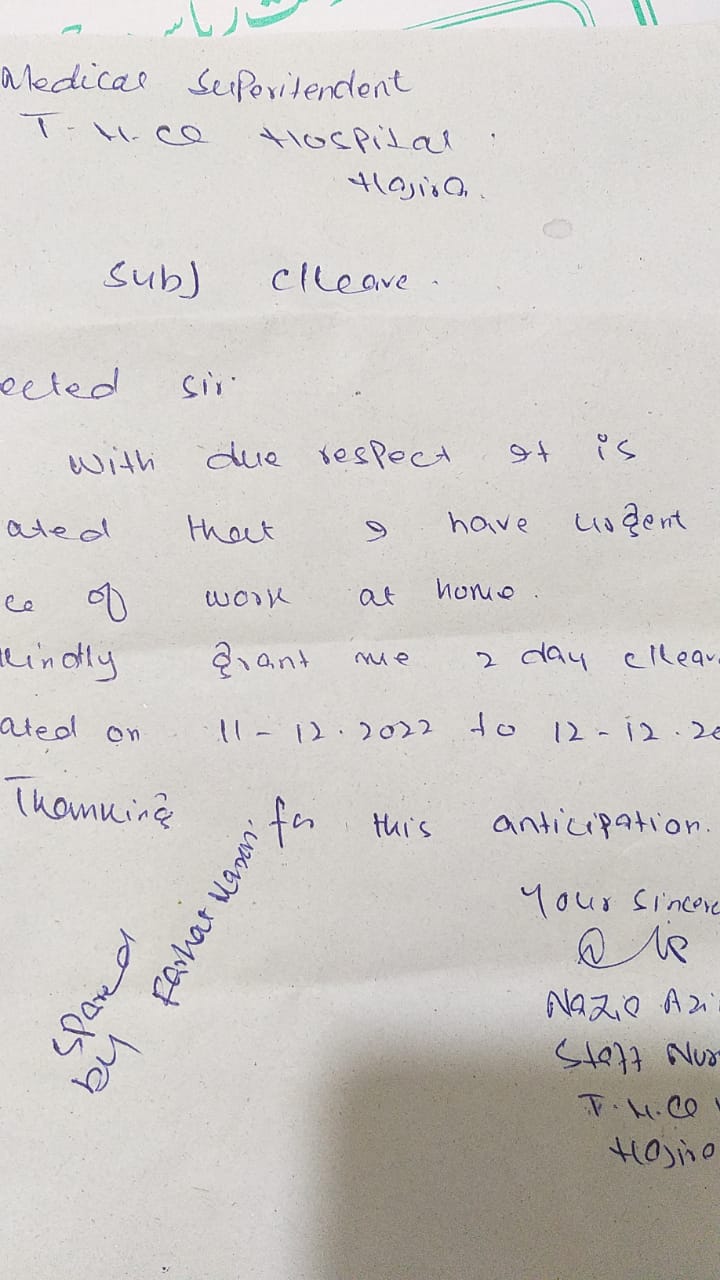 ریاست
Medical Superitendent
T.H.CQ Hospital.
Hajira.
Subj c/leave.
ected Sir.
With due respect It is
ated that I have urgent
ce of work at home.
kindly grant me 2 day c/leav
ated on 11-12.2022 to 12-12.20
Thanking for this anticipation.
Your Sincere
Nazia Azi
Staff Nur
T.H.CQ
Hajira
Spared
by Farhat